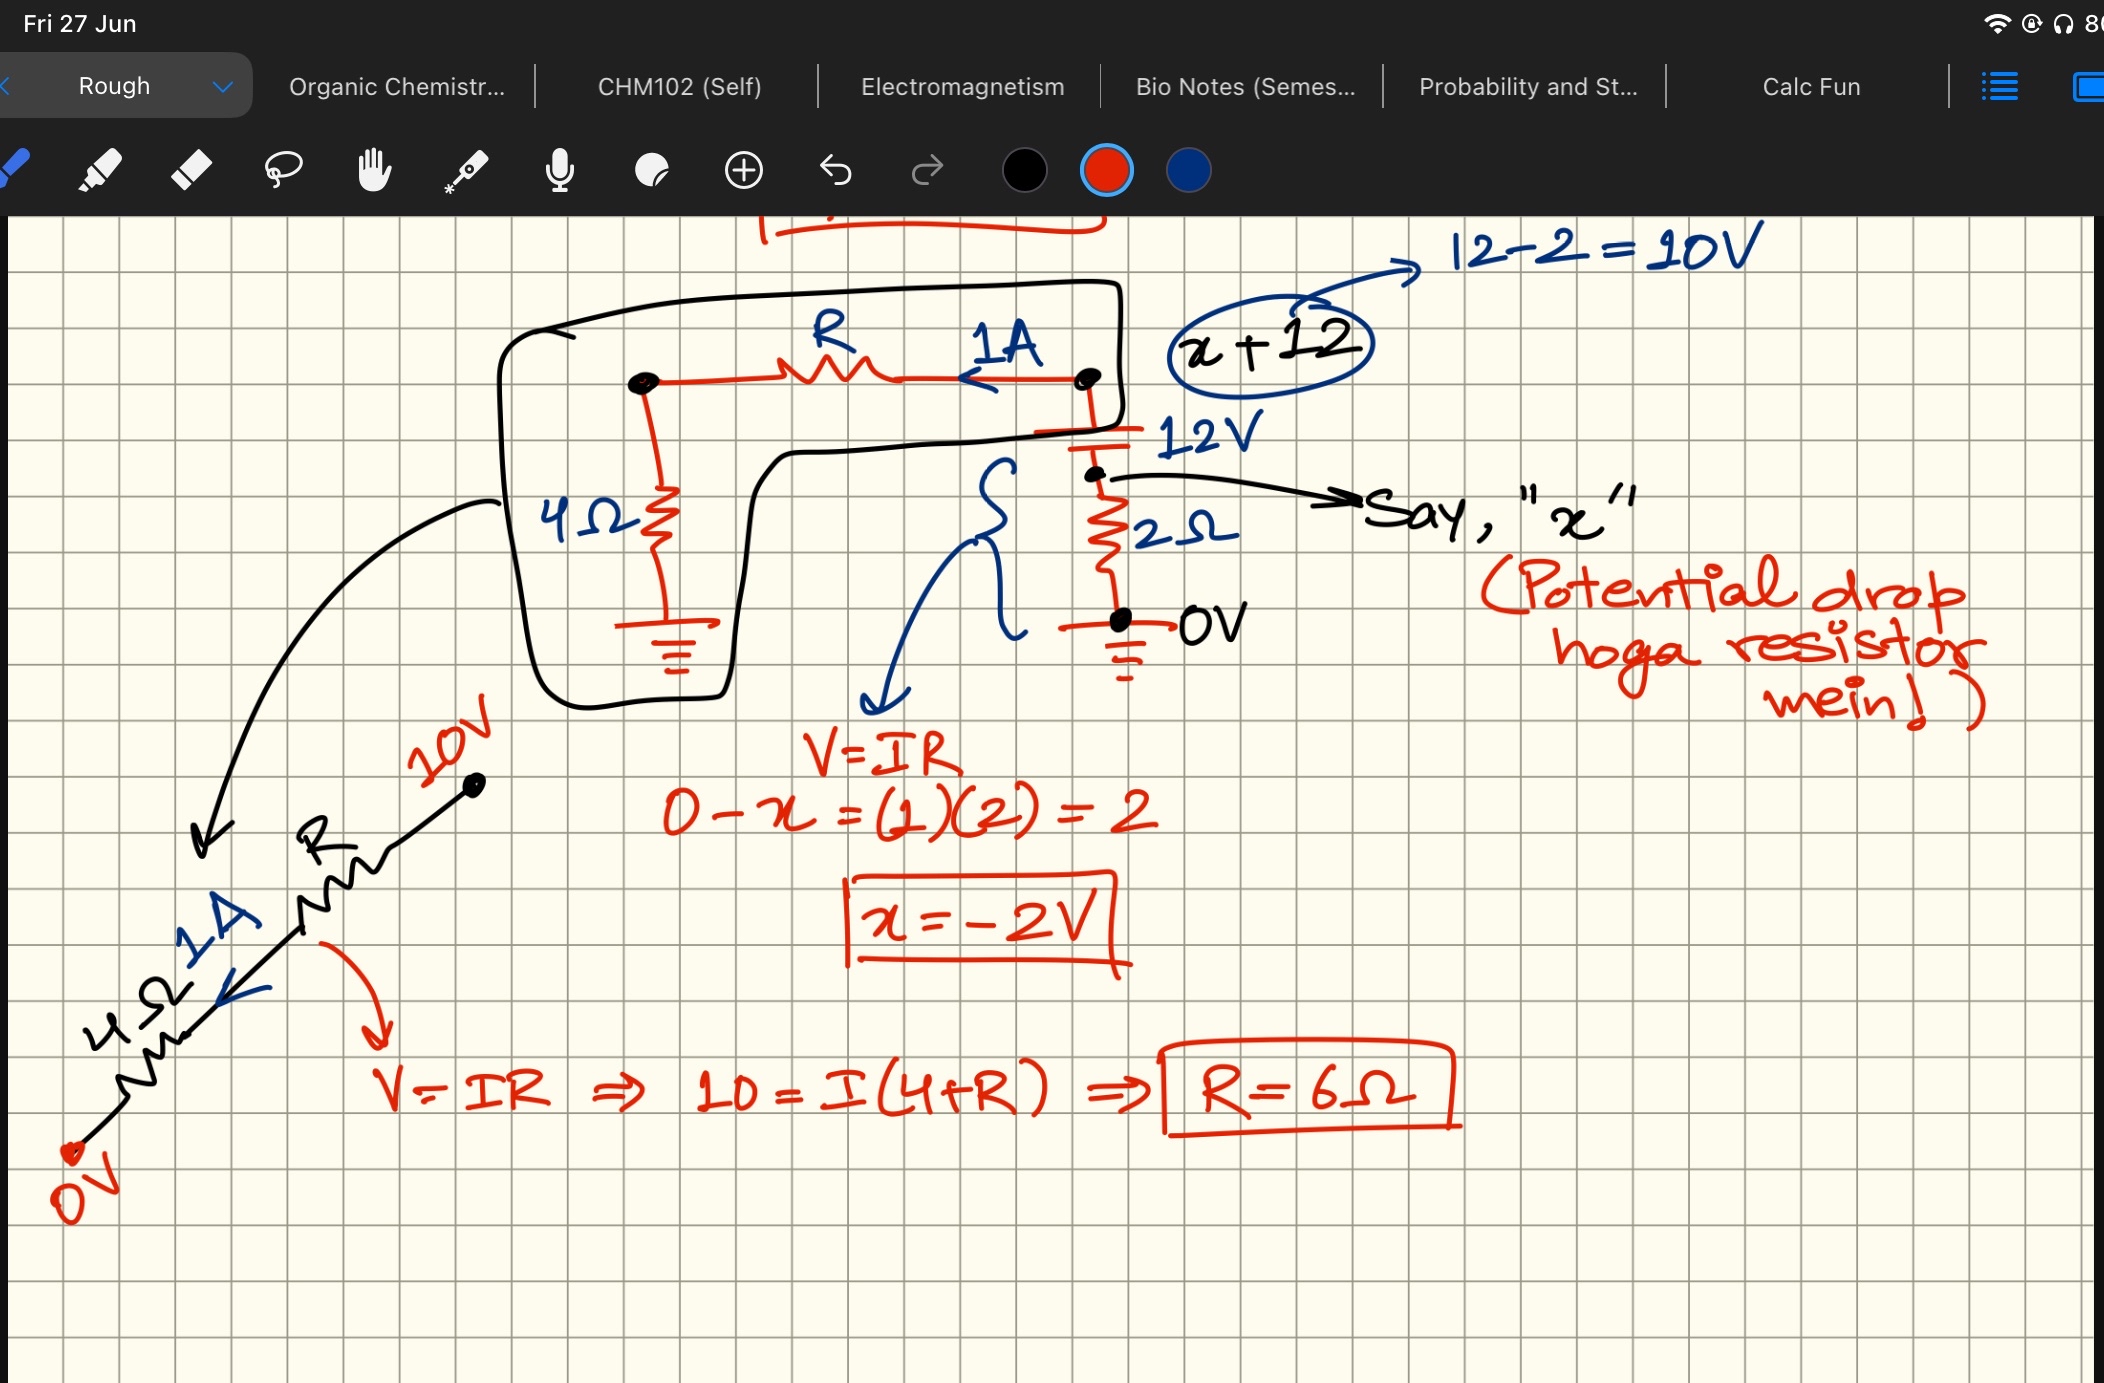 Fri 27 Jun
Rough
Organic Chemistr...
CHM102 (Self)
Electromagnetism
Bio Notes (Semes...
Probability and St...
Calc Fun
12-2=10V
R
1A
x+12
12V
4Ω
2Ω
Say, "x"
0V
(Potential drop
hoga resistor
mein!)
10V
V=IR
0-x=(1)(2)=2
R
x=-2V
1A
4Ω
V=IR ⇒ 10=I(4+R) ⇒ R=6Ω
0V